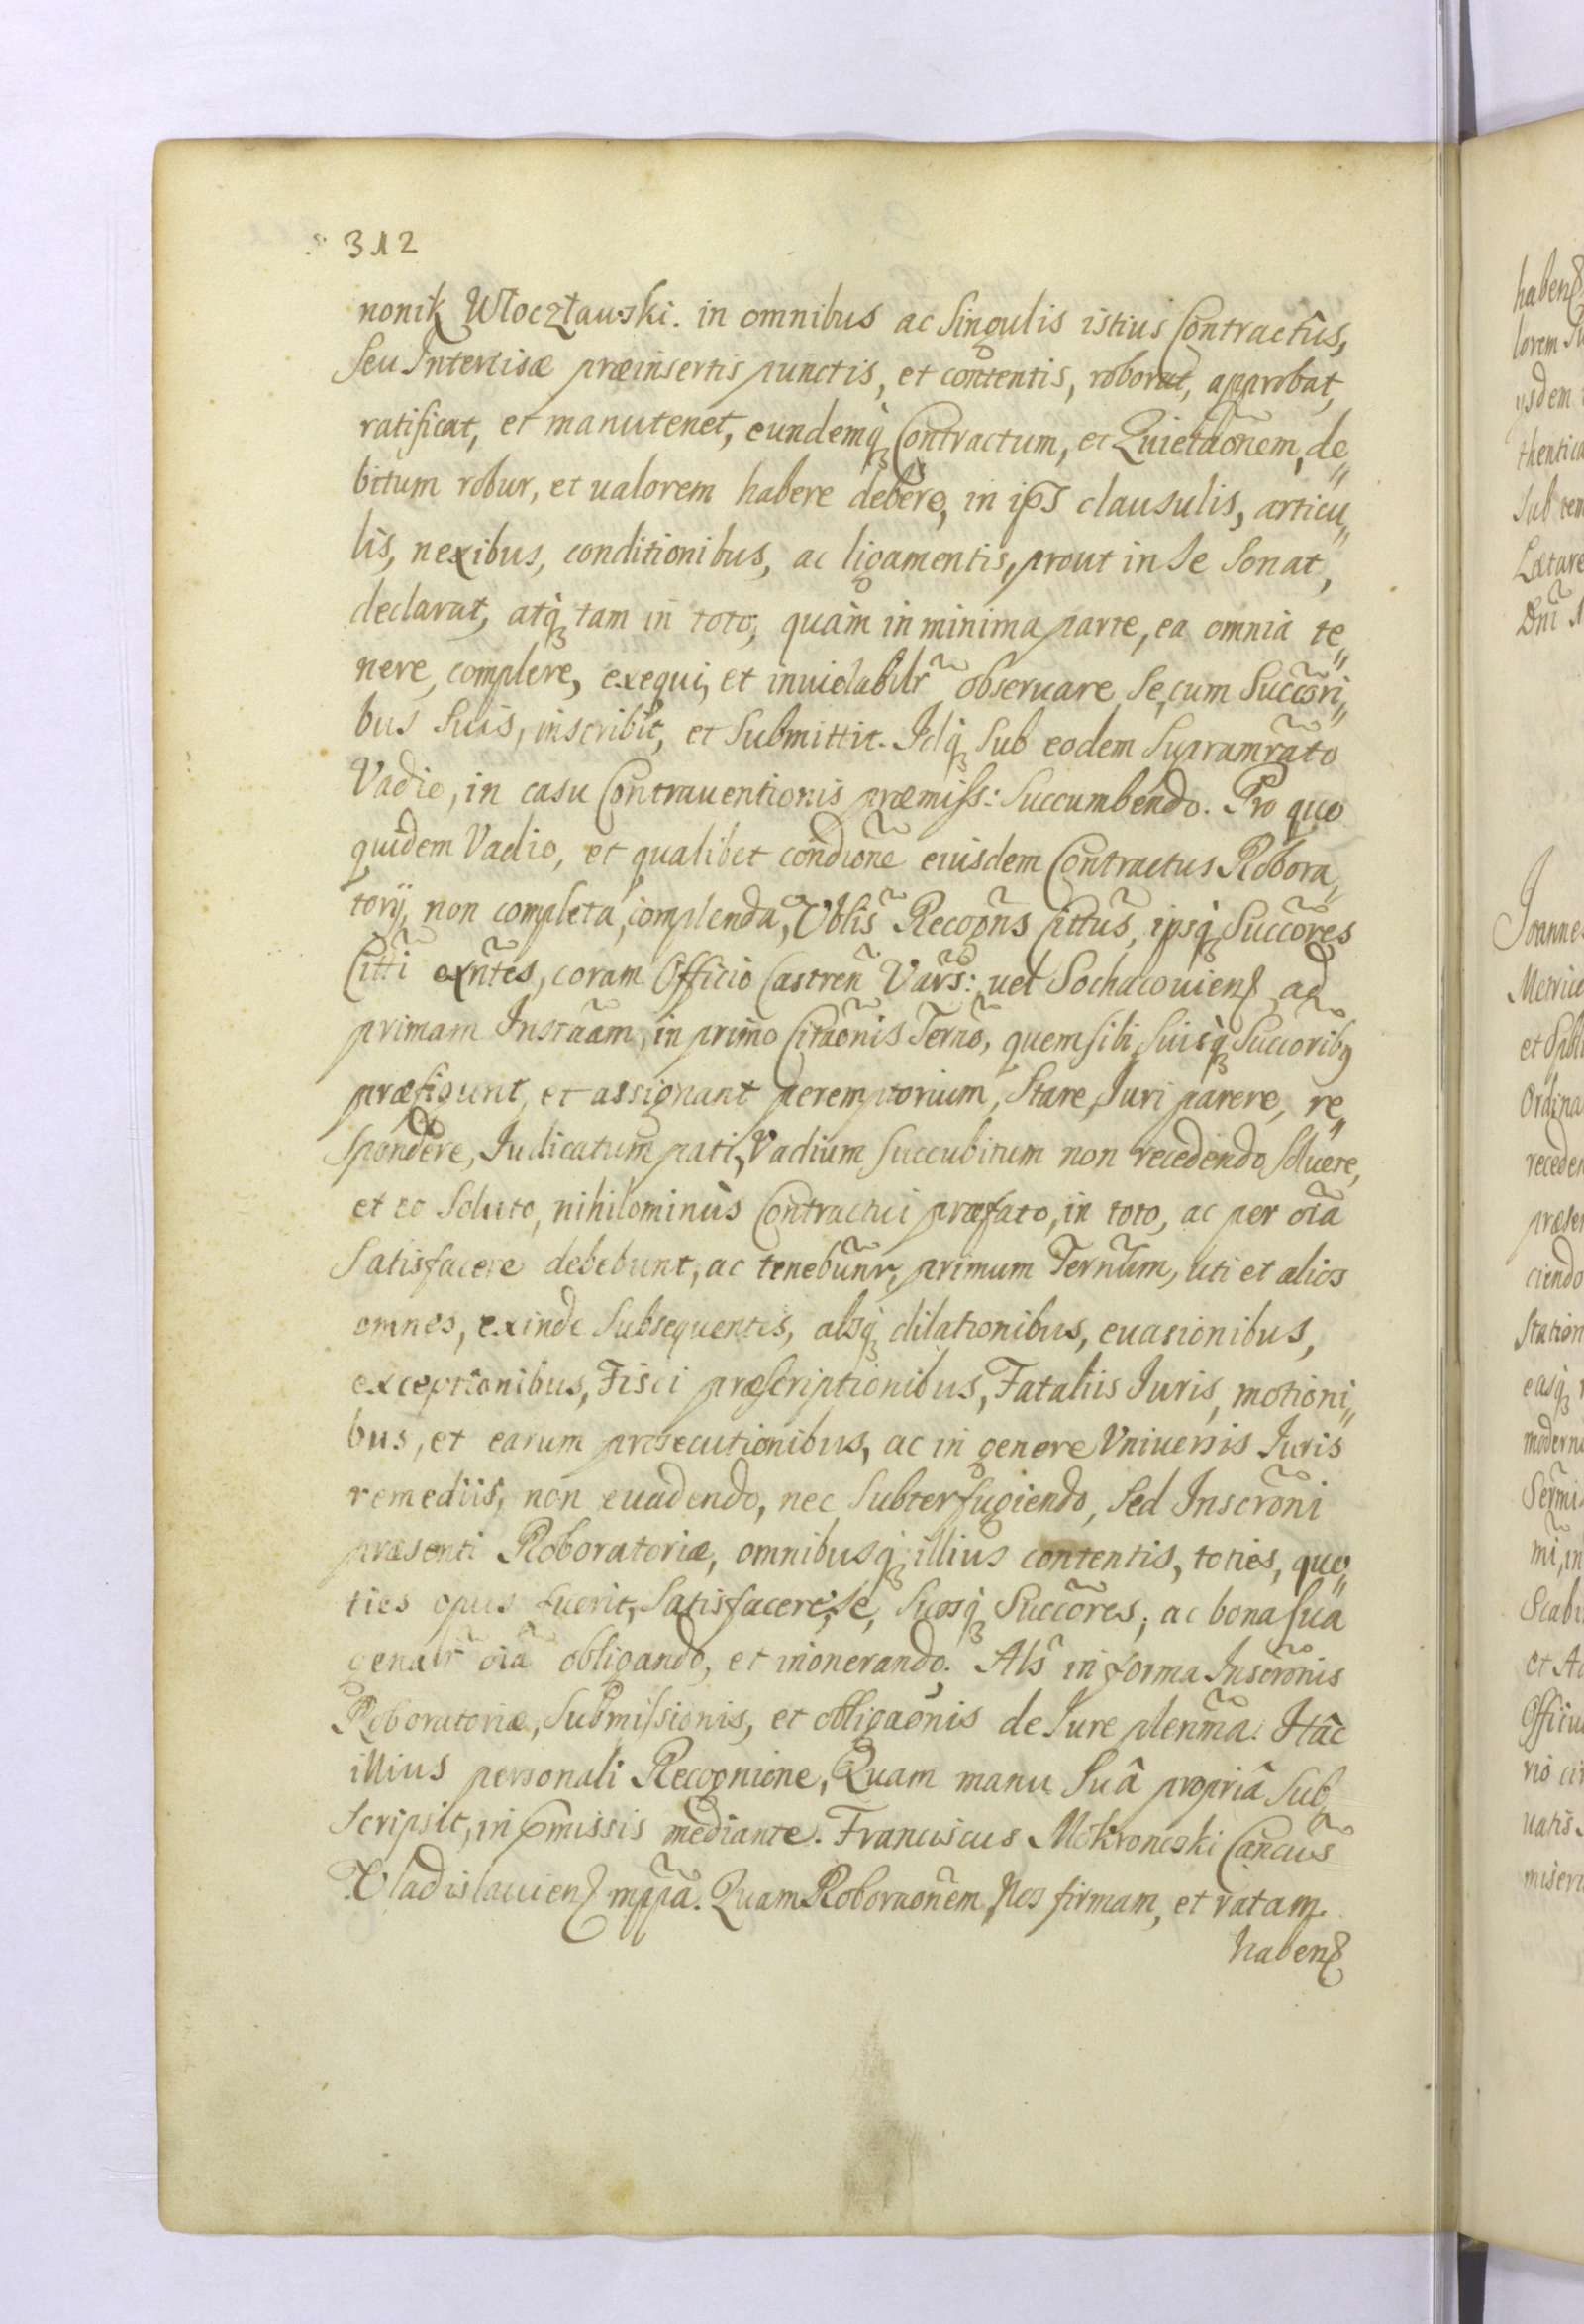 312
nonik Włoczławski. in omnibus ac Singulis istius Contractûs,
Seu Intercisæ præinsertis punctis, et contentis, roborat, approbat,
ratificat, et manutenet, eundemq; Contractum, et Quietãonem, de„
bitum robur, et ualorem habere debere, in ip̃s clausulis, articu„
lis, nexibus, conditionibus, ac ligamentis, prout in se sonat,
declarat, atq; tam in toto, quàm in minima parte, ea omnia te„
nere, complere, exequi, et inuiolabilr̃ obseruare se, cum Succõri„
bus Suis, inscribit, et Submittit. Idq; Sub eodem Supramr̃ato
Vadio, in casu Contrauentionis præmiss: Succumbendo. Pro quo
quidem Vadio, et qualibet condiõne eiusdem Contractus Robora„
torij, non completa, complenda, Oblis̃ Recogñs Cittũs, ipsiq; Succõres
Citti exñtes, coram Officio Castreñ Vars: uel Sochacouiens ad
primam Instãam, in primo Citãonis Terño, quem sibi, Suisq; Succõribq
præfigunt, et assignant peremptorium, Stare, Iuri parere, re„
spondere, Iudicatum pati, Vadium Succubitum non recedendo Soluere,
et eo Soluto, nihilominùs Contractui præfato, in toto, ac per oĩa
Satisfacere debebunt, ac tenebunr̃, primum Terñum, uti et alios
omnes, exinde Subsequentes, absq; dilationibus, euasionibus,
exceptionibus, Fisci præscriptionibus, Fataliis Iuris, motioni„
bus, et earum prosecutionibus, ac in genere Vniuersis Iuris
remediis, non euadendo, nec Subterfugiendo, Sed Inscrõni
præsenti Roboratoriæ, omnibusq; illius contentis, toties, quo„
ties opus fuerit, Satisfacere, Se, Suosq; Succõres, ac bona Sua
genalr̃ oĩa obligando, et inonerando. Als̃ in forma Inscrõnis
Roboratoriæ, Submissionis, et obligaõnis de Iure pleñma. Hâc
illius personali Recognione, Quam manu Suâ propriâ Sub„
scripsit, in p̃missis mediante. Franciscus Mokronoski Cancũs
Vladislauiens mppã. Quam Roboraõnem, Nos firmam, et ratam
habens